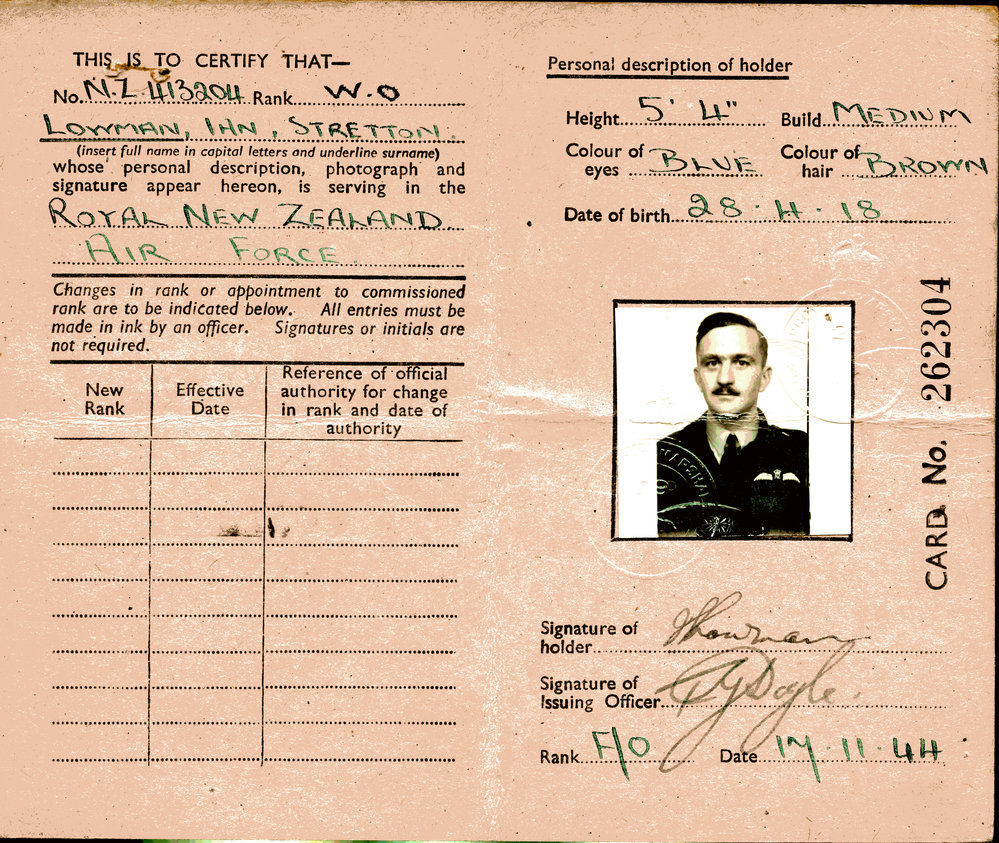 THIS IS TO CERTIFY THAT—
No. N.Z. 413204 Rank W.O
LOWMAN, IHN, STRETTON.
(insert full name in capital letters and underline surname)
whose personal description, photograph and
signature appear hereon, is serving in the
ROYAL NEW ZEALAND
AIR FORCE
Changes in rank or appointment to commissioned
rank are to be indicated below. All entries must be
made in ink by an officer. Signatures or initials are
not required.
New
Rank
Effective
Date
Reference of official
authority for change
in rank and date of
authority
Personal description of holder
Height 5' 4" Build MEDIUM
Colour of
eyes BLUE
Colour of
hair BROWN
Date of birth 28 · 4 · 18
CARD No. 262304
Signature of
holder Lowman
Signature of
Issuing Officer Doyle.
Rank F/O Date 17 · 11 · 44